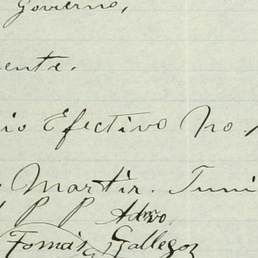 Governo,
ente.
io Efectivo No.
Martir. Juni
P P Adro.
Tomás Gallegos